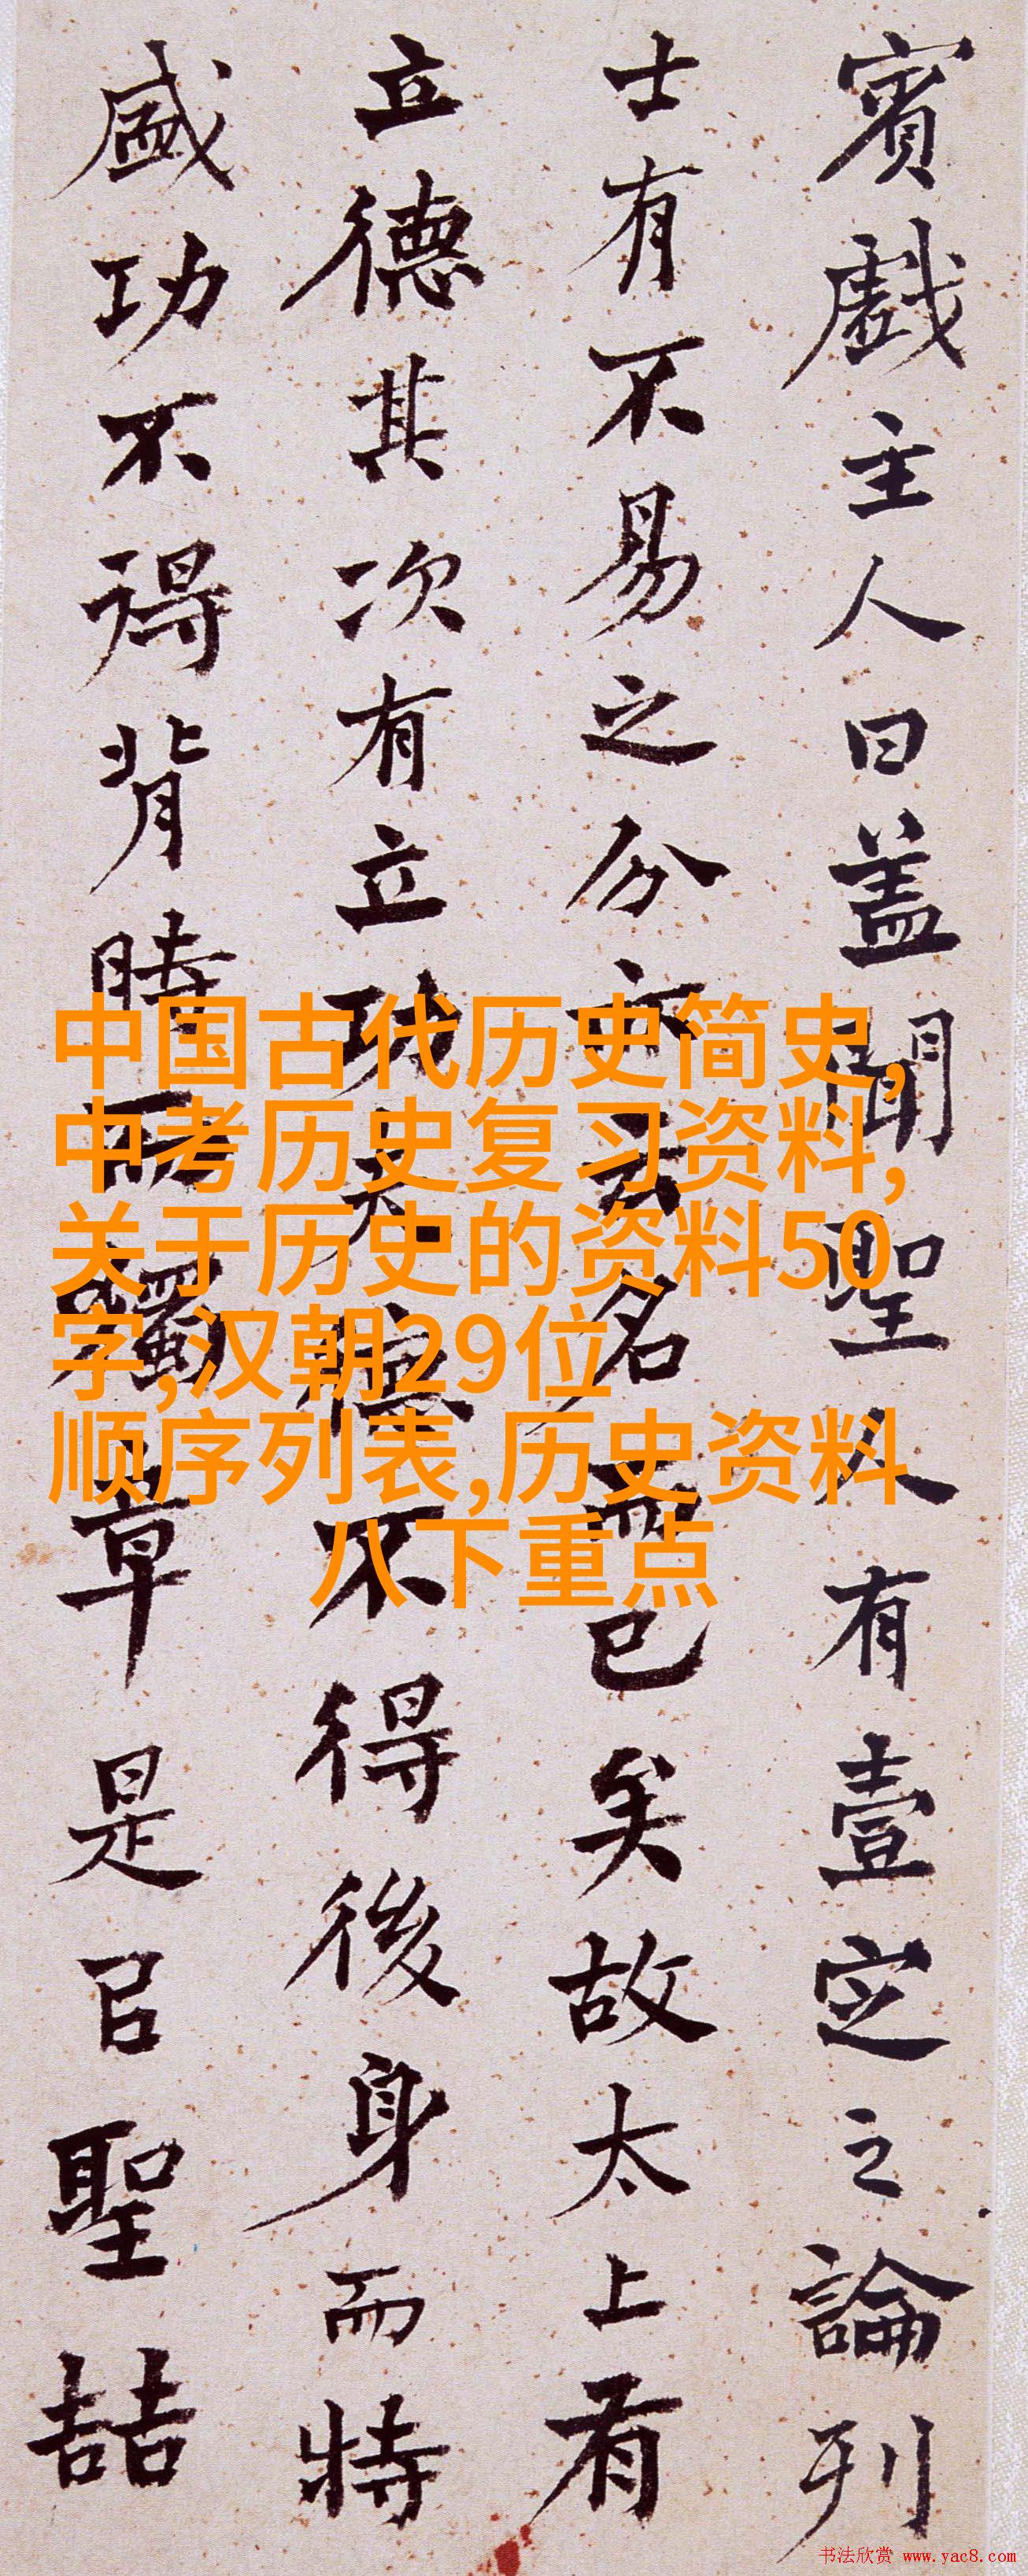 賓戲主人曰盖聞聖人有壹定之論列
士有不易之分亦云名而已矣故太上有
立德其次有立功夫德不得後身而特
盛功不得背時而獨章是以聖喆
中国古代历史简史,
中考历史复习资料,
关于历史的资料50
字,汉朝29位
顺序列表,历史资料
八下重点
书法欣赏 www.yac8.com